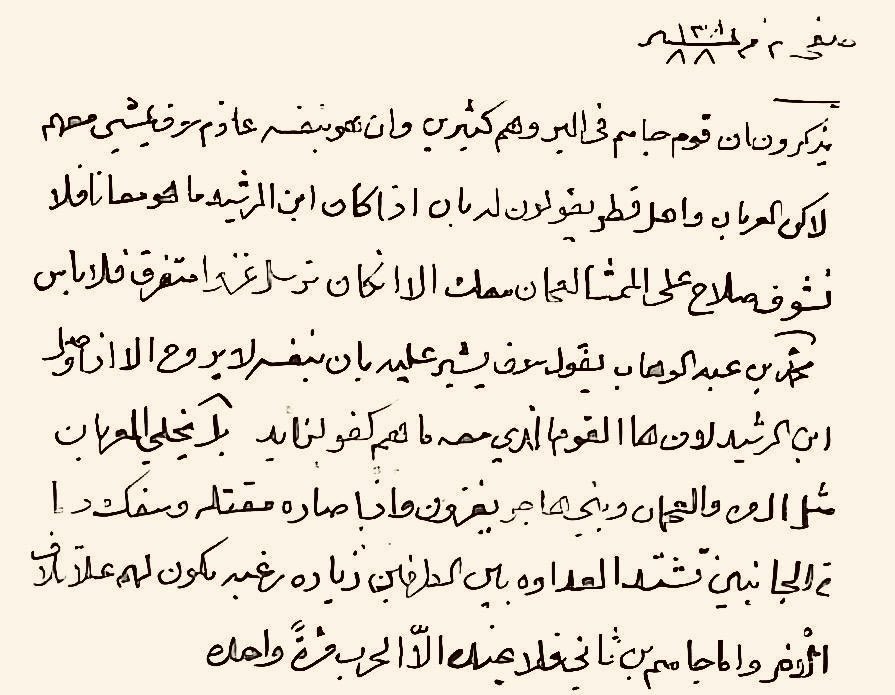 في ٢ م ١٣٠٦ / ٨٨
يذكرون ان قوم جاسم في البر وهم كثيرين وان هو بنفسه عازم سوف يمشي معهم
لاكن العربان واهل قطر يقولون له بان اذا كان ابن الرشيد ما هو معانا فلا
نشوف صلاح على الممشا لعمان معك الا انكان ترسل غزو امتفرق فلا باس
محمد بن عبد الوهاب يقول سوف يشير عليه بان بنفسه لا يروح الا اذا وصل
ابن الرشيد لان ها القوم الذي معه ما هم كفو لزايد بل يخلي العربان
مثل المره والعجمان وبني هاجر يغزون واذا صاره مقتله وسفك دما
من الجانبين تشتد العداوه بين الطرفين زياده رغبه يكون لهم علا
الاخر واما جاسم بن ثاني فلا عنده الّا الحرب مرةً واحده